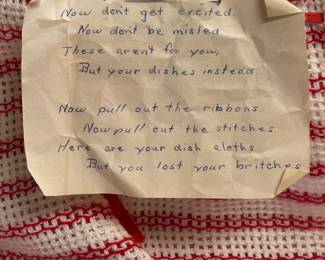 Now don't get excited.
Now don't be misled
These aren't for you,
But your dishes instead.
Now pull out the ribbons
Now pull out the stitches
Here are your dish cloths
But you lost your britches